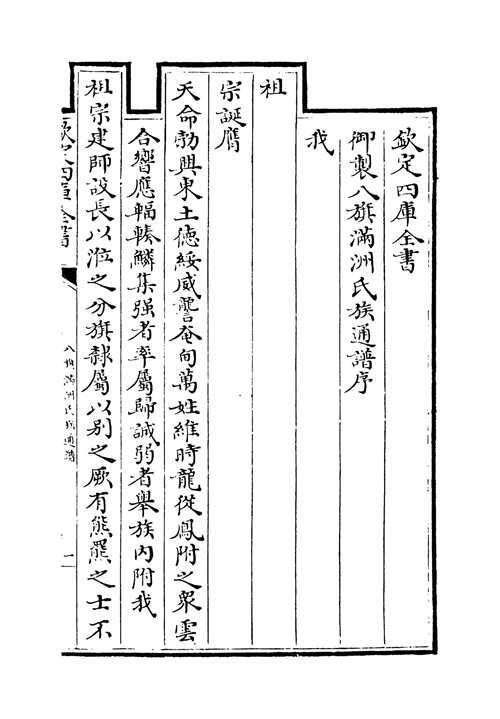 欽定四庫全書
御製八旗滿洲氏族通譜序
我
祖
宗誕膺
天命勃興東土德綏威讋奄甸萬姓維時龍從鳳附之衆雲
合響應輻輳鱗集强者率屬歸誠弱者舉族内附我
祖宗建師設長以涖之分旗隸屬以别之厥有熊羆之士不
欽定四庫全書
八旗滿洲氏族通譜
一